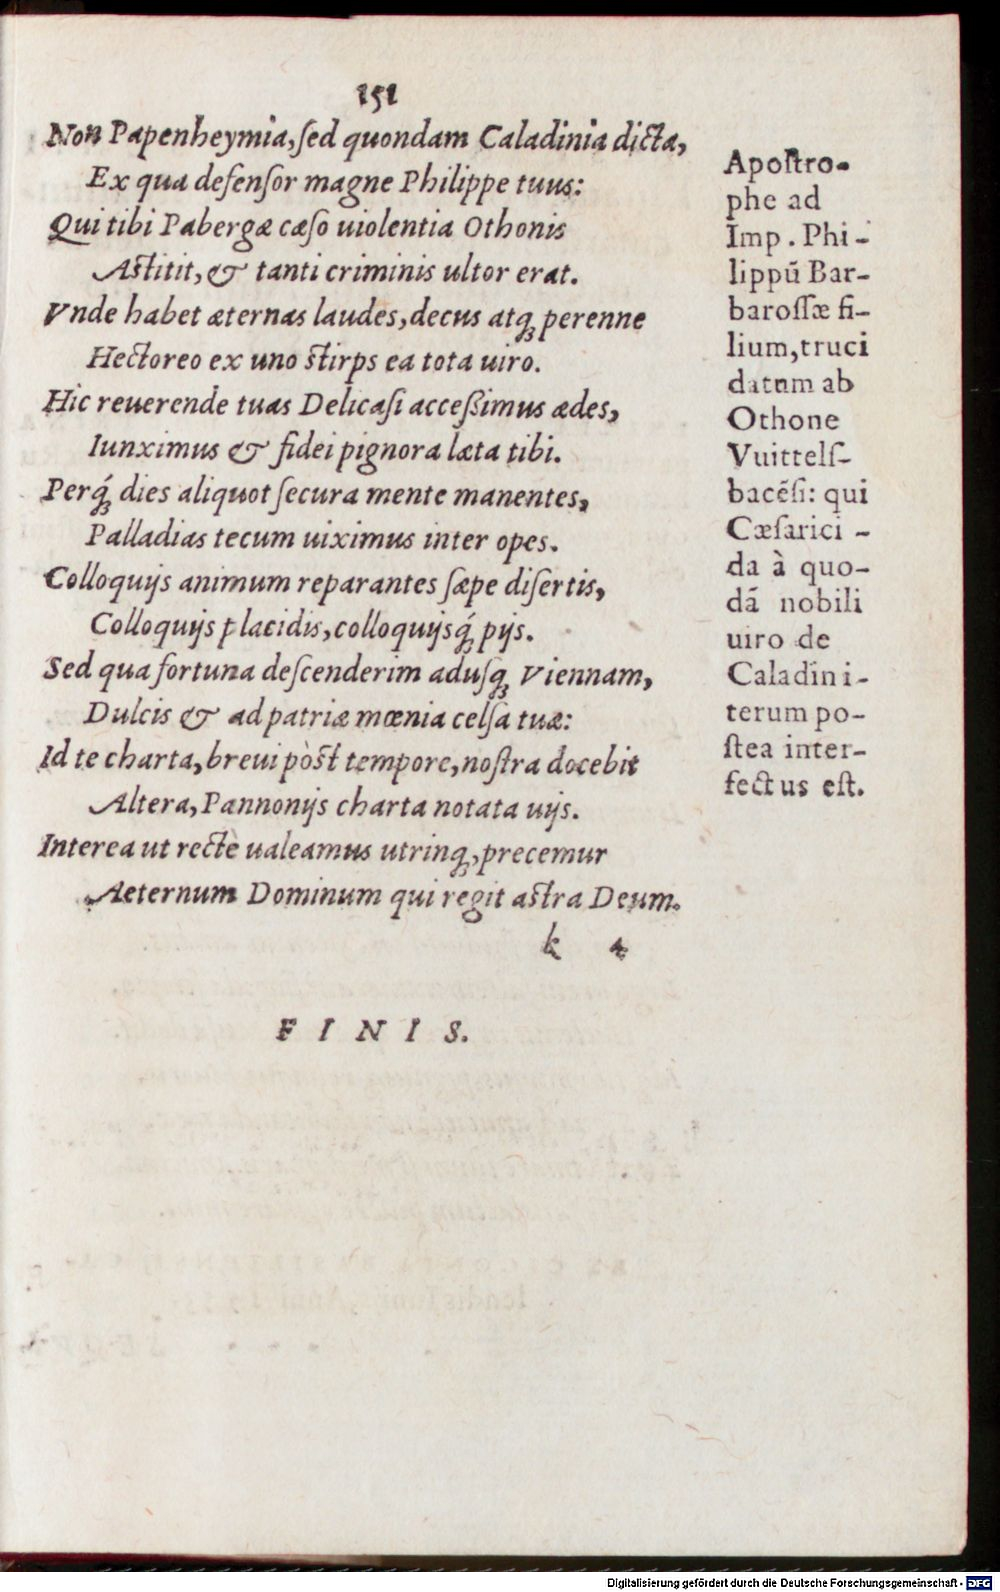 151
Non Papenheymia, ſed quondam Caladinia dicta,
Ex qua defenſor magne Philippe tuus:
Qui tibi Pabergæ cæſo uiolentia Othonis
Aſtitit, & tanti criminis ultor erat.
Vnde habet æternas laudes, decus atqꝫ perenne
Hectoreo ex uno ſtirps ea tota uiro.
Hic reuerende tuas Delicaſi acceßimus ædes,
Iunximus & fidei pignora læta tibi.
Perqꝫ́ dies aliquot ſecura mente manentes,
Palladias tecum uiximus inter opes.
Colloquijs animum reparantes ſæpe diſertis,
Colloquijs placidis, colloquijsqꝫ́ pijs.
Sed qua fortuna deſcenderim aduſqꝫ Viennam,
Dulcis & ad patriæ mœnia celſa tuæ:
Id te charta, breui pòſt tempore, noſtra docebit
Altera, Pannonijs charta notata uijs.
Interea ut rectè ualeamus utrinqꝫ, precemur
Aeternum Dominum qui regit aſtra Deum.
k 4
FINIS.
Apoſtro-
phe ad
Imp. Phi-
lippū Bar-
baroſſæ fi-
lium, truci
datum ab
Othone
Vuittelſ-
bacēſi: qui
Cæſarici-
da à quo-
dā nobili
uiro de
Caladin i-
terum po-
ſtea inter-
fectus eſt.
Digitalisierung gefördert durch die Deutsche Forschungsgemeinschaft - DFG